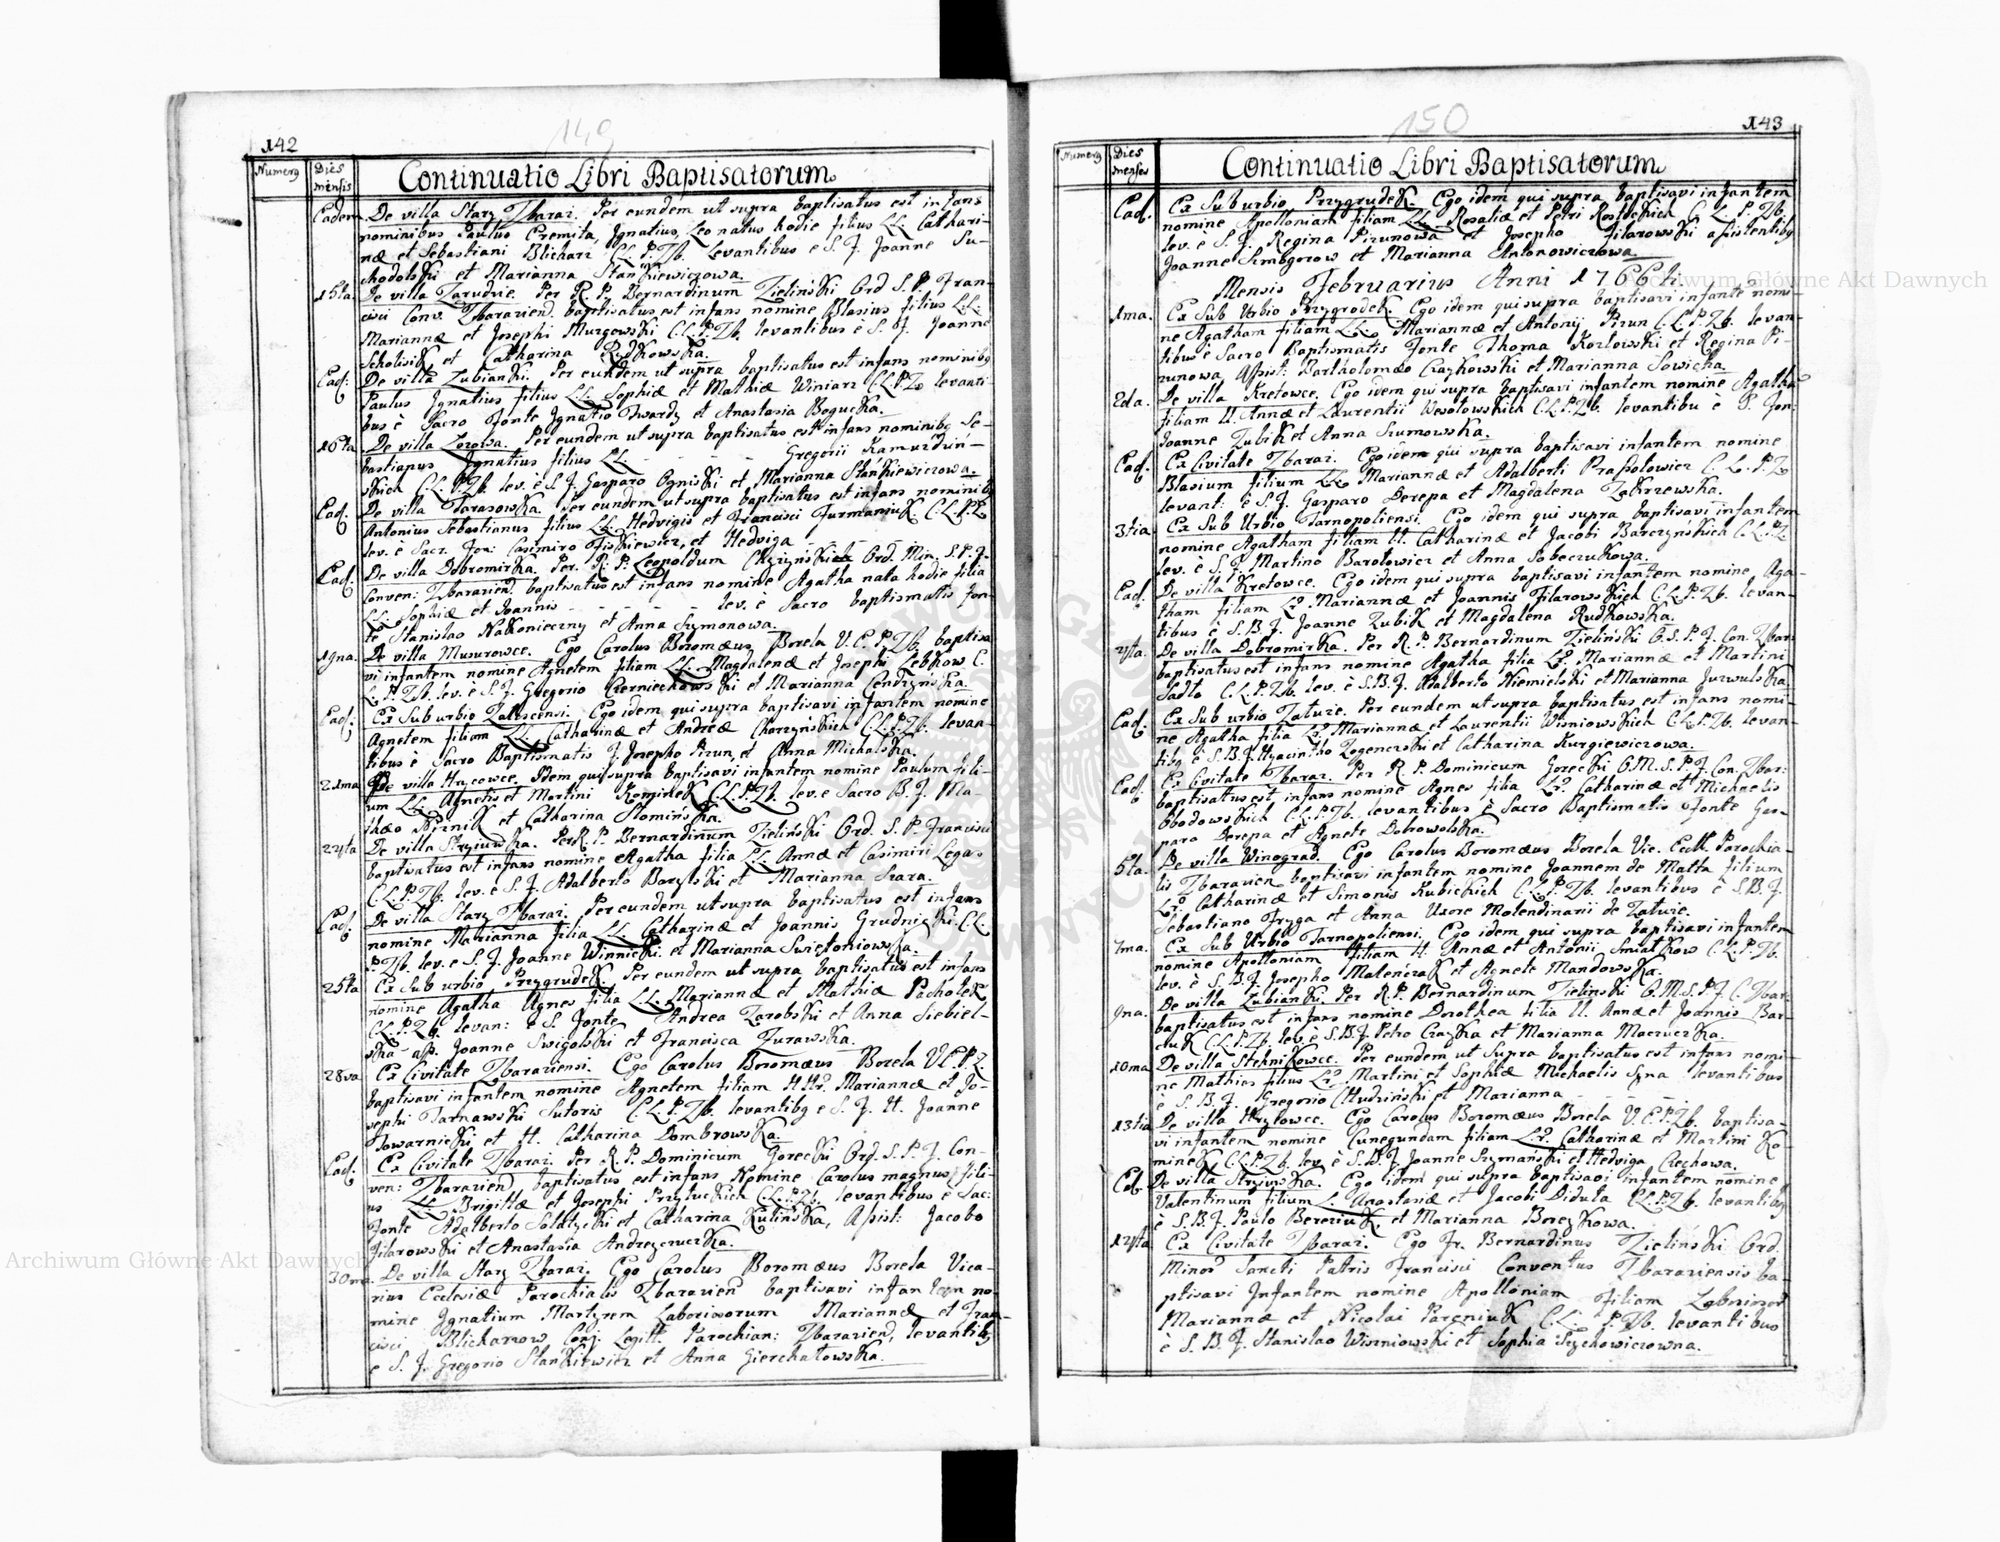 142
149
Numerg
Dies mensis
Continuatio Libri Baptisatorum
Eadem De villa Stary Zbaraz. Per eundem ut supra baptisatus est infans
nominibus Paulus Eremita, Ignatius, Leo natus hodie filius LL. Cathari-
næ et Sebastiani Blicharz C.L.P.Zb. Levantibus e S. F. Joanne Su-
chodolski et Marianna Stankiewiczowa.
15ta. De villa Zarudzie. Per R. P. Bernardinum Zieliński Ord S. P. Fran-
cisci Conv. Zbarazien. baptisatus est infans nomine Blasius filius LL.
Mariannæ et Josephi Murgowski C.L.P.Zb. levantibus è S. F. Joanne
Scholisik et Catharina Rydkowska.
Ead: De villa Lubianki. Per eundem ut supra baptisatus est infans nominibg
Paulus Ignatius filius LL. Sophiæ et Mathiæ Winiarz C.L.P.Zb. levanti-
bus è Sacro Fonte Ignatio Twardy et Anastasia Bogucka.
16ta De villa Lozowa. Per eundem ut supra baptisatus est infans nominibg Se-
bastianus Ignatius filius LL. - - - Gregorii Kamurduń-
skich C.L.P.Zb. lev. è S. F. Gasparo Ogniski et Marianna Stankiewiczowa.
Ead. De villa Tarasowka. Per eundem ut supra baptisatus est infans nominibg
Antonius Sebastianus filius LL. Hedvigis et Francisci Furmaniuk. C.L.P.Zb
lev. è Sacr. Fon: Casimiro Fiskiewicz, et Hedviga - - -
Ead. De villa Dobromirka. Per. R. P. Leopoldum Chrzyńskich Ord. Min. S. P. F.
Conven: Zbarazien. baptisatus est infans nomine Agatha nata hodie filia
LL. Sophiæ et Joannis - - - - lev. è Sacro baptismatis Fon-
te Stanislao Nakonieczny et Anna Szymonowa.
19na. De villa Musurowce. Ego Carolus Boromæus Borela V. E. P. Zb. baptisa
vi infantem nomine Agnetem filiam LL. Magdalenæ et Josephi Lebkow C.
L. P. Zb. lev. è S. F. Gregorio Czerniechowski et Marianna Gendzynska.
Ead: Ex Sub urbio Zaluscensi. Ego idem qui supra baptisavi infantem nomine
Agnetem filiam LL. Catharinæ et Andreæ Chorzyńskich C.L.P.Zb. levan-
tibus è Sacro Baptismatis F. Josepho Pizun, et Anna Michalska.
21ma De villa Hrycowce. Idem qui supra baptisavi infantem nomine Paulum fili-
um LL. Agnetis et Martini Kominek C.L.P.Zb. lev. e Sacro B. F. Ma-
thæo Woznik et Catharina Slomińska.
24ta De villa Stryiuwka. Per R. P. Bernardinum Zieliński Ord. S. P. Francisci
baptisatus est infans nomine Agatha filia LL. Annæ et Casimiri Legas
C.L.P.Zb. lev. è S. F. Adalberto Barylski et Marianna Szara.
Ead. De villa Stary Zbaraz. Per eundem ut supra baptisatus est infans
nomine Marianna filia LL. Catharinæ et Joannis Grudnicki C.L.
P.Zb. lev. e S. F. Joanne Winnicki et Marianna Swiętoniowska.
25ta Ex Sub urbio Przygrudek. Per eundem ut supra baptisatus est infans
nomine Agatha Agnes filia LL. Mariannæ et Mathiæ Pacholek
C.L.P.Zb. levan: è S. Fonte Andrea Zarobski et Anna Siebiel-
ska ass. Joanne Swigolski et Francisca Zurawska.
28va Ex Civitate Zbaraziensi. Ego Carolus Boromæus Borela V.E.P.Z.
baptisavi infantem nomine Agnetem filiam HHr. Mariannæ et Jo-
sephi Tarnawski Sutoris C.L.P.Zb. levantibg e S. F. H. Joanne
Towarnicki et H. Catharina Dombrowska.
Ead. Ex Civitate Zbaraz. Per R. P. Dominicum Gorecki Ord. S. P. F. Con-
ven: Zbarazien. baptisatus est infans Nomine Carolus magnus fili-
us LL. Brigittæ et Josephi Przyluckich C.L.P.Zb. levantibus è Sac:
Fonte Adalberto Soldzicki et Catharina Kulińska, Assist: Jacobo
Filarowski et Anastasia Andrzeyczuczka.
30ma. De villa Stary Zbaraz. Ego Carolus Boromæus Borela Vica-
rius Ecclesiæ Parochialis Zbarazien baptisavi infantem no-
mine Ignatium Martyrem Laboriosorum Mariannæ et Fran-
cisci Blicharzow Conj. Legitt. Parochian: Zbarazien, levantibg
e S. F. Gregorio Stankiewicz et Anna Gierchatowska.
143
150
Numerg
Dies menses
Continuatio Libri Baptisatorum
Ead. Ex Sub urbio Przygrudek. Ego idem qui supra baptisavi infantem
nomine Apolloniam filiam LL. Rosaliæ et Petri Rosolskich C. L. P. Zb.
lev. e S. F. Regina Pizunowa et Josepho Filarowski assistentibg
Joanne Szmogorow et Marianna Antonowiczowa.
Mensis Februarius Anni 1766ti
1ma. Ex Sub Urbio Przygrodek. Ego idem qui supra baptisavi infante nomi-
ne Agatham filiam LL. Mariannæ et Antonij Pizun C.L.P.Zb. levan-
tibus è Sacro Baptismatis Fonte Thoma Kozlowski et Regina Pi-
zunowa Assist: Bartholomæo Czaykowski et Marianna Sowicka.
2da. De villa Kretowce. Ego idem qui supra baptisavi infantem nomine Agatha
filiam ll. Annæ et Laurentii Wesolowskich C.L.P.Zb. levantibu è S. Fon:
Joanne Zubik et Anna Szumowska.
Ead. Ex Civitate Zbaraz. Ego idem qui supra baptisavi infantem nomine
Blasium filium LL. Mariannæ et Adalberti Prassolowicz C. L. P. Zb
levant: è S. F. Gasparo Derepa et Magdalena Zakrzewska.
3tia. Ex Sub Urbio Tarnopoliensi. Ego idem qui supra baptisavi infantem
nomine Agatham filiam ll. Catharinæ et Jacobi Barczyńskich C.L.P.Z.
lev. è S. F. Martino Barolowicz et Anna Sobeczukowa.
Ead. De villa Kretowce. Ego idem qui supra baptisavi infantem nomine Aga-
tham filiam Lr. Mariannæ et Joannis Filarowskich C.L.P.Zb. levan-
tibus è S. B. F. Joanne Zubik et Magdalena Rudkowska.
4ta. De villa Dobromirka. Per R. P. Bernardinum Zieliński O. S. P. F. Con. Zbar:
baptisatus est infans nomine Agatha filia Lr. Mariannæ et Martini
Sadlo C.L.P.Zb. lev. è S.B.F. Adalberto Niemielski et Marianna Jurwulska.
Ead. Ex Sub urbio Zaluze. Per eundem ut supra baptisatus est infans nomi-
ne Agatha filia Lr. Mariannæ et Laurentii Wisniowskich C.L.P.Zb. levan-
tibg è S.B.F. Hyacintho Logenczski et Catharina Kurgiewiczowa.
Ead. Ex Civitate Zbaraz. Per R. P. Dominicum Gorecki O.M.S.P.F. Con. Zbar:
baptisatus est infans nomine Agnes filia Lr. Catharinæ et Michaelis
Obodowskich C.L.P.Zb. levantibus è Sacro Baptismatis Fonte Gas-
paro Derepa et Agnete Dobrowolska.
5ta. De villa Winograd. Ego Carolus Boromæus Borela Vic. Eccl. Parochia-
lis Zbarazien baptisavi infantem nomine Joannem de Matha filium
Lr. Catharinæ et Simonis Kubickich C.L.P.Zb. levantibus è S.B.F.
Sebastiano Fryga et Anna Uxore Molendinarii de Zaluze.
7ma. Ex Sub Urbio Tarnopoliensi. Ego idem qui supra baptisavi infantem
nomine Apolloniam filiam ll. Annæ et Antonii Smiatkow C.L.P.Zb.
lev. è S. B. F. Josepho Malenczak et Agnete Mandowska.
9na. De villa Lubianki. Per R.P. Bernardinum Zielinski O.M.S.P.F. C. Zbar:
baptisatus est infans nomine Dorothea filia ll. Annæ et Joannis Bar-
cluk C.L.P.Zb. lev. è S.B.F. Petro Czayka et Marianna Maczuczka.
10ma De villa Stehnikowce. Per eundem ut Supra baptisatus est infans nomi-
ne Mathias filius Lr. Martini et Sophiæ Michaelis Syna levantibus
è S. B. F. Gregorio Chudziński et Marianna - - - -
13tia De villa Hrytowce. Ego Carolus Boromæus Borela V. E. P. Zb. baptisa-
vi infantem nomine Cunegundam filiam Lr. Catharinæ et Martini Ko-
minek C.L.P.Zb. lev. è S. B. F. Joanne Szymański et Hedviga Czechowa.
Ed. De villa Stryiuwka. Ego idem qui supra baptisavi infantem nomine
Valentinum filium L. Anastasiæ et Jacobi Didula C.L.P.Zb. levantibg
è S. B. F. Paulo Bereziuk et Marianna Borczkowa.
14ta Ex Civitate Zbaraz. Ego Fr. Bernardinus Zieliński Ord.
Minor Sancti Patris Francisci Conventus Zbaraziensis ba-
ptisavi Infantem nomine Apolloniam filiam Laborioror
Mariannæ et Nicolai Parzniuk C.L. P.Zb. levantibus
è S. B. F. Stanislao Wiszniowski et Sophia Szychowiczowna.
Archiwum Główne Akt Dawnych
Archiwum Główne Akt Dawnych